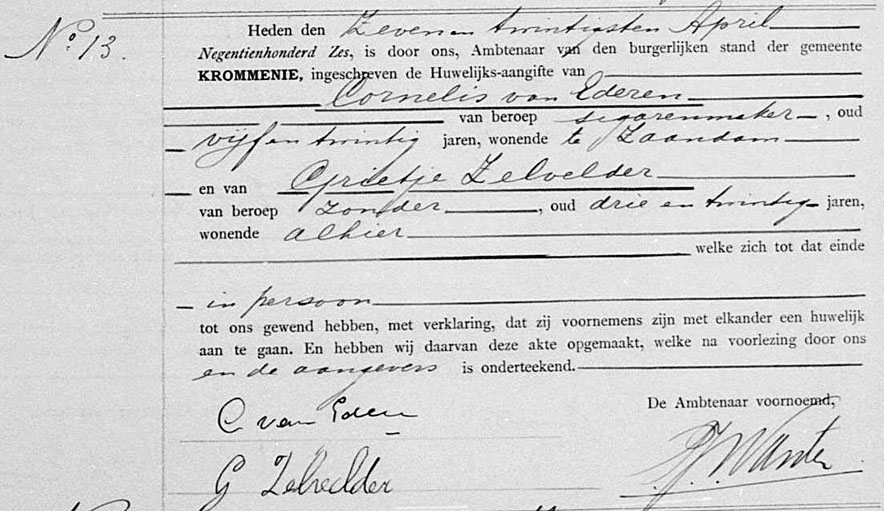 No. 13.
Heden den zeven en twintigsten April
Negentienhonderd Zes, is door ons, Ambtenaar van den burgerlijken stand der gemeente
KROMMENIE, ingeschreven de Huwelijks-aangifte van
Cornelis van Ederen
van beroep sigarenmaker, oud
vijf en twintig jaren, wonende te Zaandam
en van Grietje Zelvelder
van beroep zonder, oud drie en twintig jaren,
wonende alhier
welke zich tot dat einde
in persoon
tot ons gewend hebben, met verklaring, dat zij voornemens zijn met elkander een huwelijk
aan te gaan. En hebben wij daarvan deze akte opgemaakt, welke na voorlezing door ons
en de aangevers is onderteekend.
De Ambtenaar voornoemd,
C van Eden
G Zelvelder